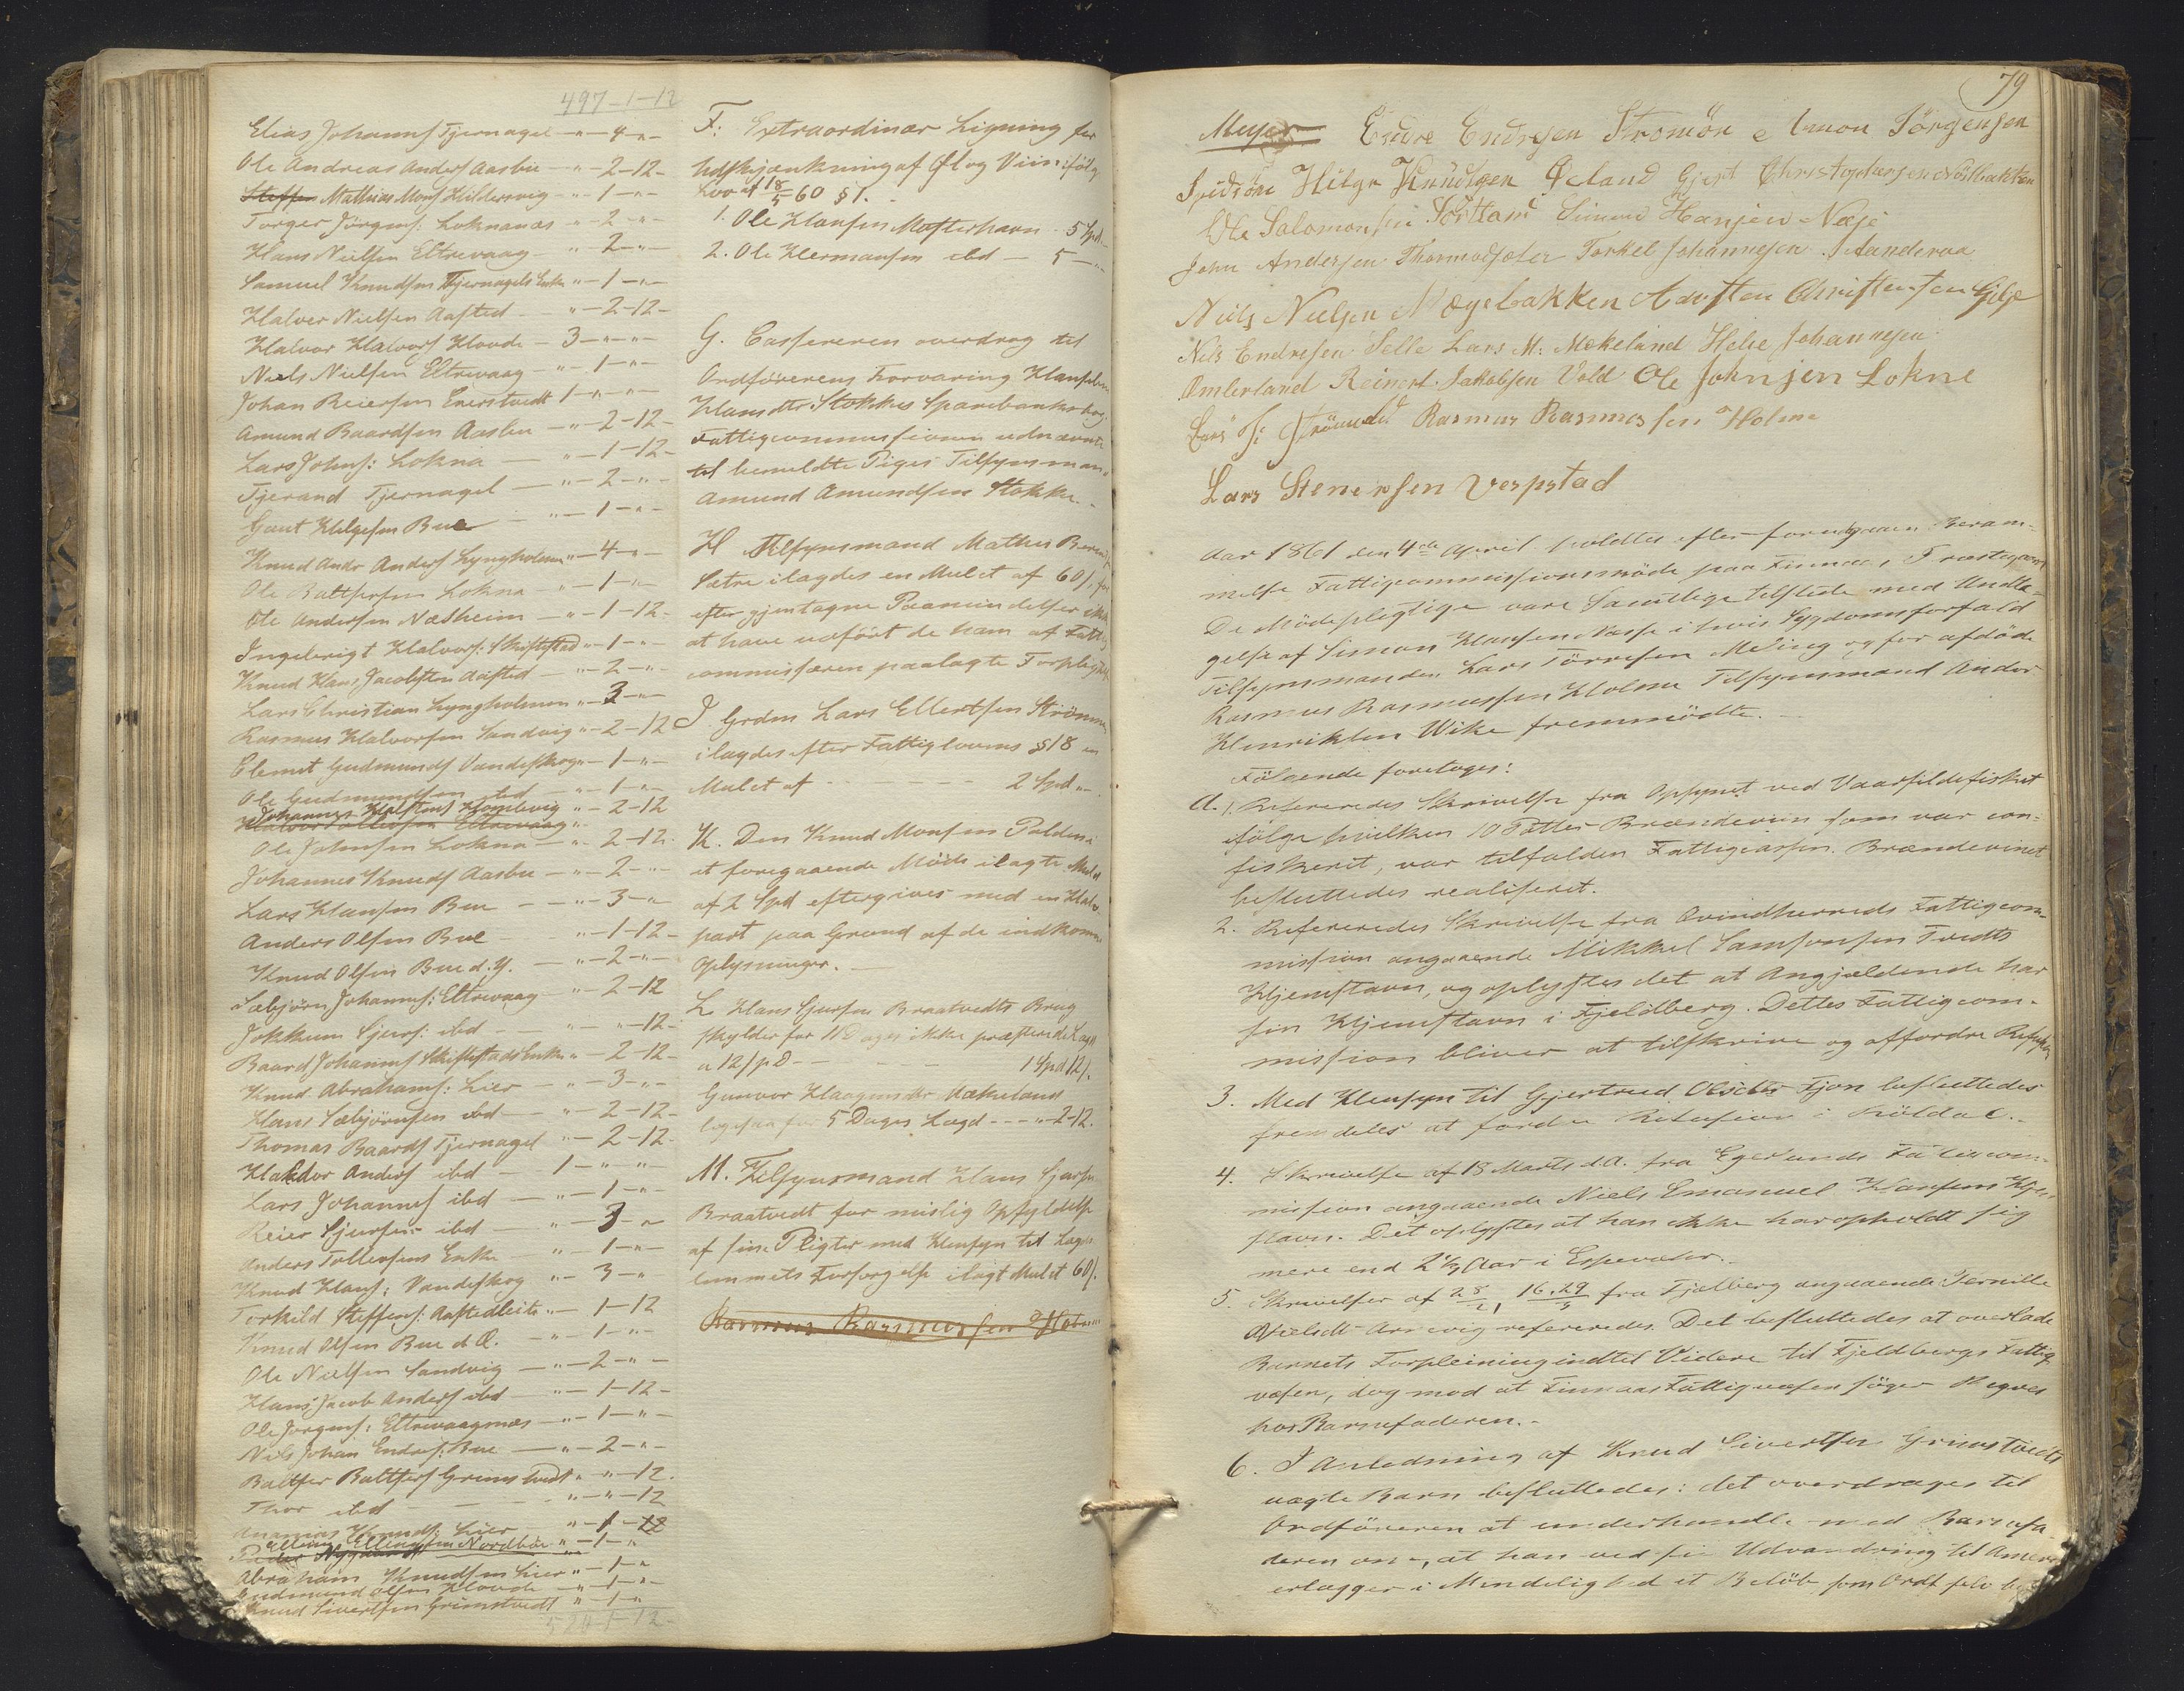 497-1-12
Elias Johannes Tjernagel - " - 4 - " -
Ole Andreas Anders Aasbu - " - 2 - 12 -
Steffen Mathias Mons Hildersvig - " - 1 - " -
Torger Jörgens: Loknanæs - " - 2 - " -
Hans Nielsen Eltrevaag - " - 2 - " -
Samuel Knudsen Tjernagels Enke " - 1 - " -
Halvor Nielsen Aafsted - " - 2 - 12 -
Halvor Halvors Hovde - 3 - " - " -
Niels Nielsen Eltrevaag - " - 1 - " -
Johan Reiersen Enerstvedt 1 - " - " -
Amund Baardsen Aasbu - " - 2 - 12 -
Lars Johns: Lokna - " - 1 - 12 -
Tjerand Tjernagel - " - 2 - " -
Gaut Helgesen Bue - " - 1 - " -
Knud Andr Anders Lyngholmen " - 4 - " -
Ole Baltsersen Lokna - " - 1 - " -
Ole Andersen Næsheim - " - 1 - 12 -
Ingebrigt Halvors: Skiftestad " - 1 - " -
Knud Hans Jacobsten Aafsted - " - 2 - " -
Lars Christian Lyngholmen " - 3 - " -
Rasmus Halvorsen Sandvig " - 2 - 12
Clemet Gudmunds Vandeskog " - 1 - " -
Ole Gudmundsen ibd - " - 1 - " -
Johannes Halstens Hombevig " - 2 - 12
Halvor Tollevsen Eltrevaag "
Ole Johnsen Lokna - " - 2 - 12 -
Johannes Knuds Aasbu - " - 2 - " -
Lars Hansen Bue - " - 3 - " -
Anders Olsen Bue - " - 1 - 12 -
Knud Olsen Bue d. Y. - " - 2 - " -
Sæbjörn Johannes: Eltrevaag " - 2 - 12
Jokkum Sjurs: ibd - " - " - 12 -
Baard Johannes Skiftestads Enke " - 2 - 12 -
Knud Abrahams: Lier - " - 3 - " -
Hans Sæbjörnsen ibd - " - 2 - 12 -
Thomas Baards Tjernagel " - 2 - 12 -
Haldor Anders ibd - 1 - " - " -
Lars Johannes ibd - " - 1 - " -
Reier Sjursen ibd - " - 3 - " -
Anders Tollefsens Enke - " - 1 - " -
Knud Hans: Vandeskog " - 3 - " -
Torkild Steffens: Aafstedleite " - 1 - 12
Knud Olsen Bue d Æ. - " - 1 - " -
Ole Nielsen Sandvig - " - 2 - " -
Hans Jacob Anders ibd - " - 1 - 12 -
Ole Jörgens: Eltrevaagnæs - " - 1 - " -
Nils Johan Endres: Bue - " - 2 - " -
Baltser Baltsers Grimstvedt " - " - 12 -
Thor ibd - " - " - 12
Ananias Knuds: Lier " - 1 - 12
Elling Ellingsen Nordbøe " - 1 - "
Peder Nygaard
Abraham Knudsen Lier " - 1 - "
Gudmund Olsen Hovde - " - 1 - " -
Knud Sivertsen Grimstvedt " - 1 - "
520-1-12
F: Extraordinær Ligning for
Udskjænkning af Øl og Viin ifölge
Lov af 18/5 60 § 1.
1. Ole Hansen Mosterhavn - 5 Spd -
2. Ole Hermansen ibd - 5 - " -
G. Cassereren overdrog til
Ordförerens Forvaring Hans
Hansdtr Stokkes Sparebanksbog
Fattigcommissionen udnævnte
til bemeldte Piges Tilsynsmand
Amund Amundsen Stokke. -
H Tilsynsmand Mathis
Sætre ilagdes en Mulct af 60 s. for
efter gjentagne Paamindelser ikke
at have udført de ham af Fattig
commissæren paalagte Forpligtelser
J. Grdm Lars Ellertsen Strömmen
ilagdes efter Fattiglovens § 18 en
Mulct af - - - - 2 Spd " -
K. Den Knud Monsen Paldens i
et foregaaende Möde ilagte Mulct
af 2 Spd eftergives med en Halv
part paa Grund af de indkomne
Oplysninger. -
L Hans Sjursen Braatvedts Brug
skylder for 11 Dages ikke præsterede Lægd
a 12 s pD - - - 1 Spd 12 s.
Gunvor Haagensdtr Mækeland
ligesaa for 5 Dages Lægd - - - " - 2 - 12.
M. Tilsynsmand Hans Sjursen
Braatvedt for mislig Opfyldelse
af sine Pligter med Hensyn til Lægds
lemmets Forsörgelse ilagt Mulct 60 s.
Rasmus Rasmussen Holme
79
Meyer Endre Endresen Stromön Simon Jörgensen
Spidsöen Helge Knudtsen Øeland Gjert Christophersen Mölbakken
Ole Salomonsen Förlland Simon Hansen Næse
John Andersen Thormodsæter Torkel Johannesen Aanderaa
Niels Nielsen Mægebakken Advsten Christensen Gilje
Nils Endresen Selle Lars M: Mækeland Helie Johannesen
Ømlerland Reinert Jakobsen Vold Ole Johnsen Lokne
Lars Strömd Rasmus Rasmussen Holme
Lars Stenersen Vespstad
Aar 1861 den 4de April holdtes efter foregaaen Beram-
melse Fattigcommissionsmöde paa Finnaas Præstegaard
De Mödepligtige vare samtlige tilstede med Undta-
gelse af Simon Hansen Næsse i hvis Sygdomsforfald
Tilsynsmanden Lars Törresen Meling og for afdöde
Rasmus Rasmussen Holme Tilsynsmand Anders
Henriksen Wike fremmödte. -
Fölgende foretoges:
A. 1. Refereredes Skrivelse fra Opsynet ved Vaarsildefisket
ifölge hvilken 10 Potter Brændeviin som var con-
fiskeret, var tilfalden Fattigcassen. Brændevinet
besluttedes realiseret.
2. Refereredes Skrivelse fra Qvindherreds Fattigcom-
mission angaaende Mikkel Samsonsen Tvedts
Hjemstavn, og oplystes det at Angjældende har
sin Hjemstavn i Fjeldberg. Dettes Fattigcom-
mission bliver at tilskrive og affordre Refusion
3. Med Hensyn til Gjertrud Olsdtr Fjon besluttedes
fremdeles at fordre Refusion i Röldal. -
4. Skrivelse af 13 Marts d. A. fra Egersunds Fattigcom-
mission angaaende Niels Emanuel Hansens Hjem-
stavn. Det oplystes at han ikke har opholdt sig
mere end 2 1/2 Aar i Espevær. -
5. Skrivelser af 28/2, 16.29/3 fra Fjelberg angaaende Pernille
Nielsdtr Arnevig refereredes. Det besluttedes at overlade
Barnets Forpleining indtil Videre til Fjeldbergs Fattig
væsen, dog mod at Finnaas Fattigvæsen söger Regres
hos Barnefaderen. -
6. I Anledning af Knud Sivertsen Grimstvedts
uægte Barn besluttedes: det overdrages til
Ordföreren at underhandle med Barnefa-
deren om, at han ved sin Udvandring til Amerika
erlægger i Mindelighed et Belöb som Ordf selv